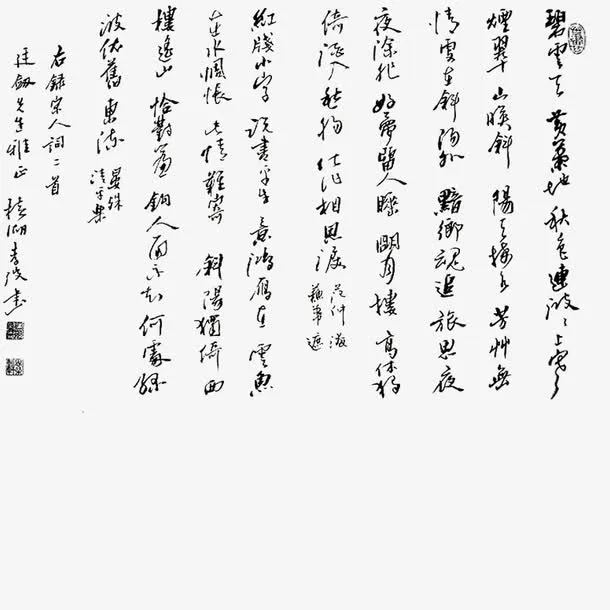 碧雲天黄葉地秋色連波〻上寒
煙翠山映斜陽天接水芳艸無
情更在斜陽外黯鄉魂追旅思夜
夜除非好夢留人睡明月樓高休獨
倚酒入愁腸化作相思淚
范仲淹
蘇幕遮
紅牋小字説盡平生意鴻雁在雲魚
在水惆悵此情難寄斜陽獨倚西
樓遥山恰對簾鉤人面不知何處緑
波依舊東流
晏殊
清平樂
右録宋人詞二首
廷劔先生雅正